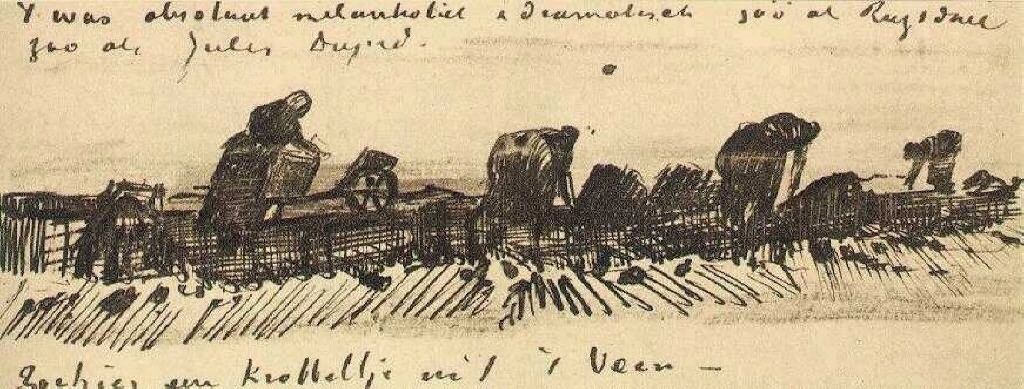 't was absoluut melankoliek & dramatisch zoo als Ruysdael
zoo als Jules Dupré.
Ziehier een krabbeltje uit 't Veen –